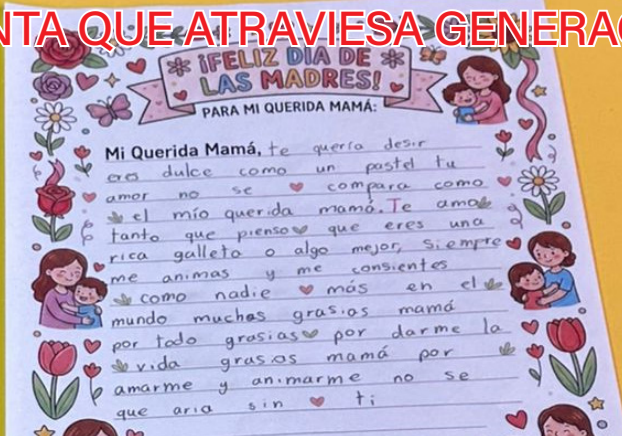 NTA QUE ATRAVIESA GENERAC
¡FELIZ DÍA DE
LAS MADRES!
PARA MI QUERIDA MAMÁ:
Mi Querida Mamá, te quería desir
eres dulce como un pastel tu
amor no se compara como
el mío querida mamá. Te amo
tanto que pienso que eres una
rica galleta o algo mejor, siempre
me animas y me consientes
como nadie más en el
mundo muchas grasias mamá
por todo grasias por darme la
vida grasias mamá por
amarme y animarme no se
que aria sin ti